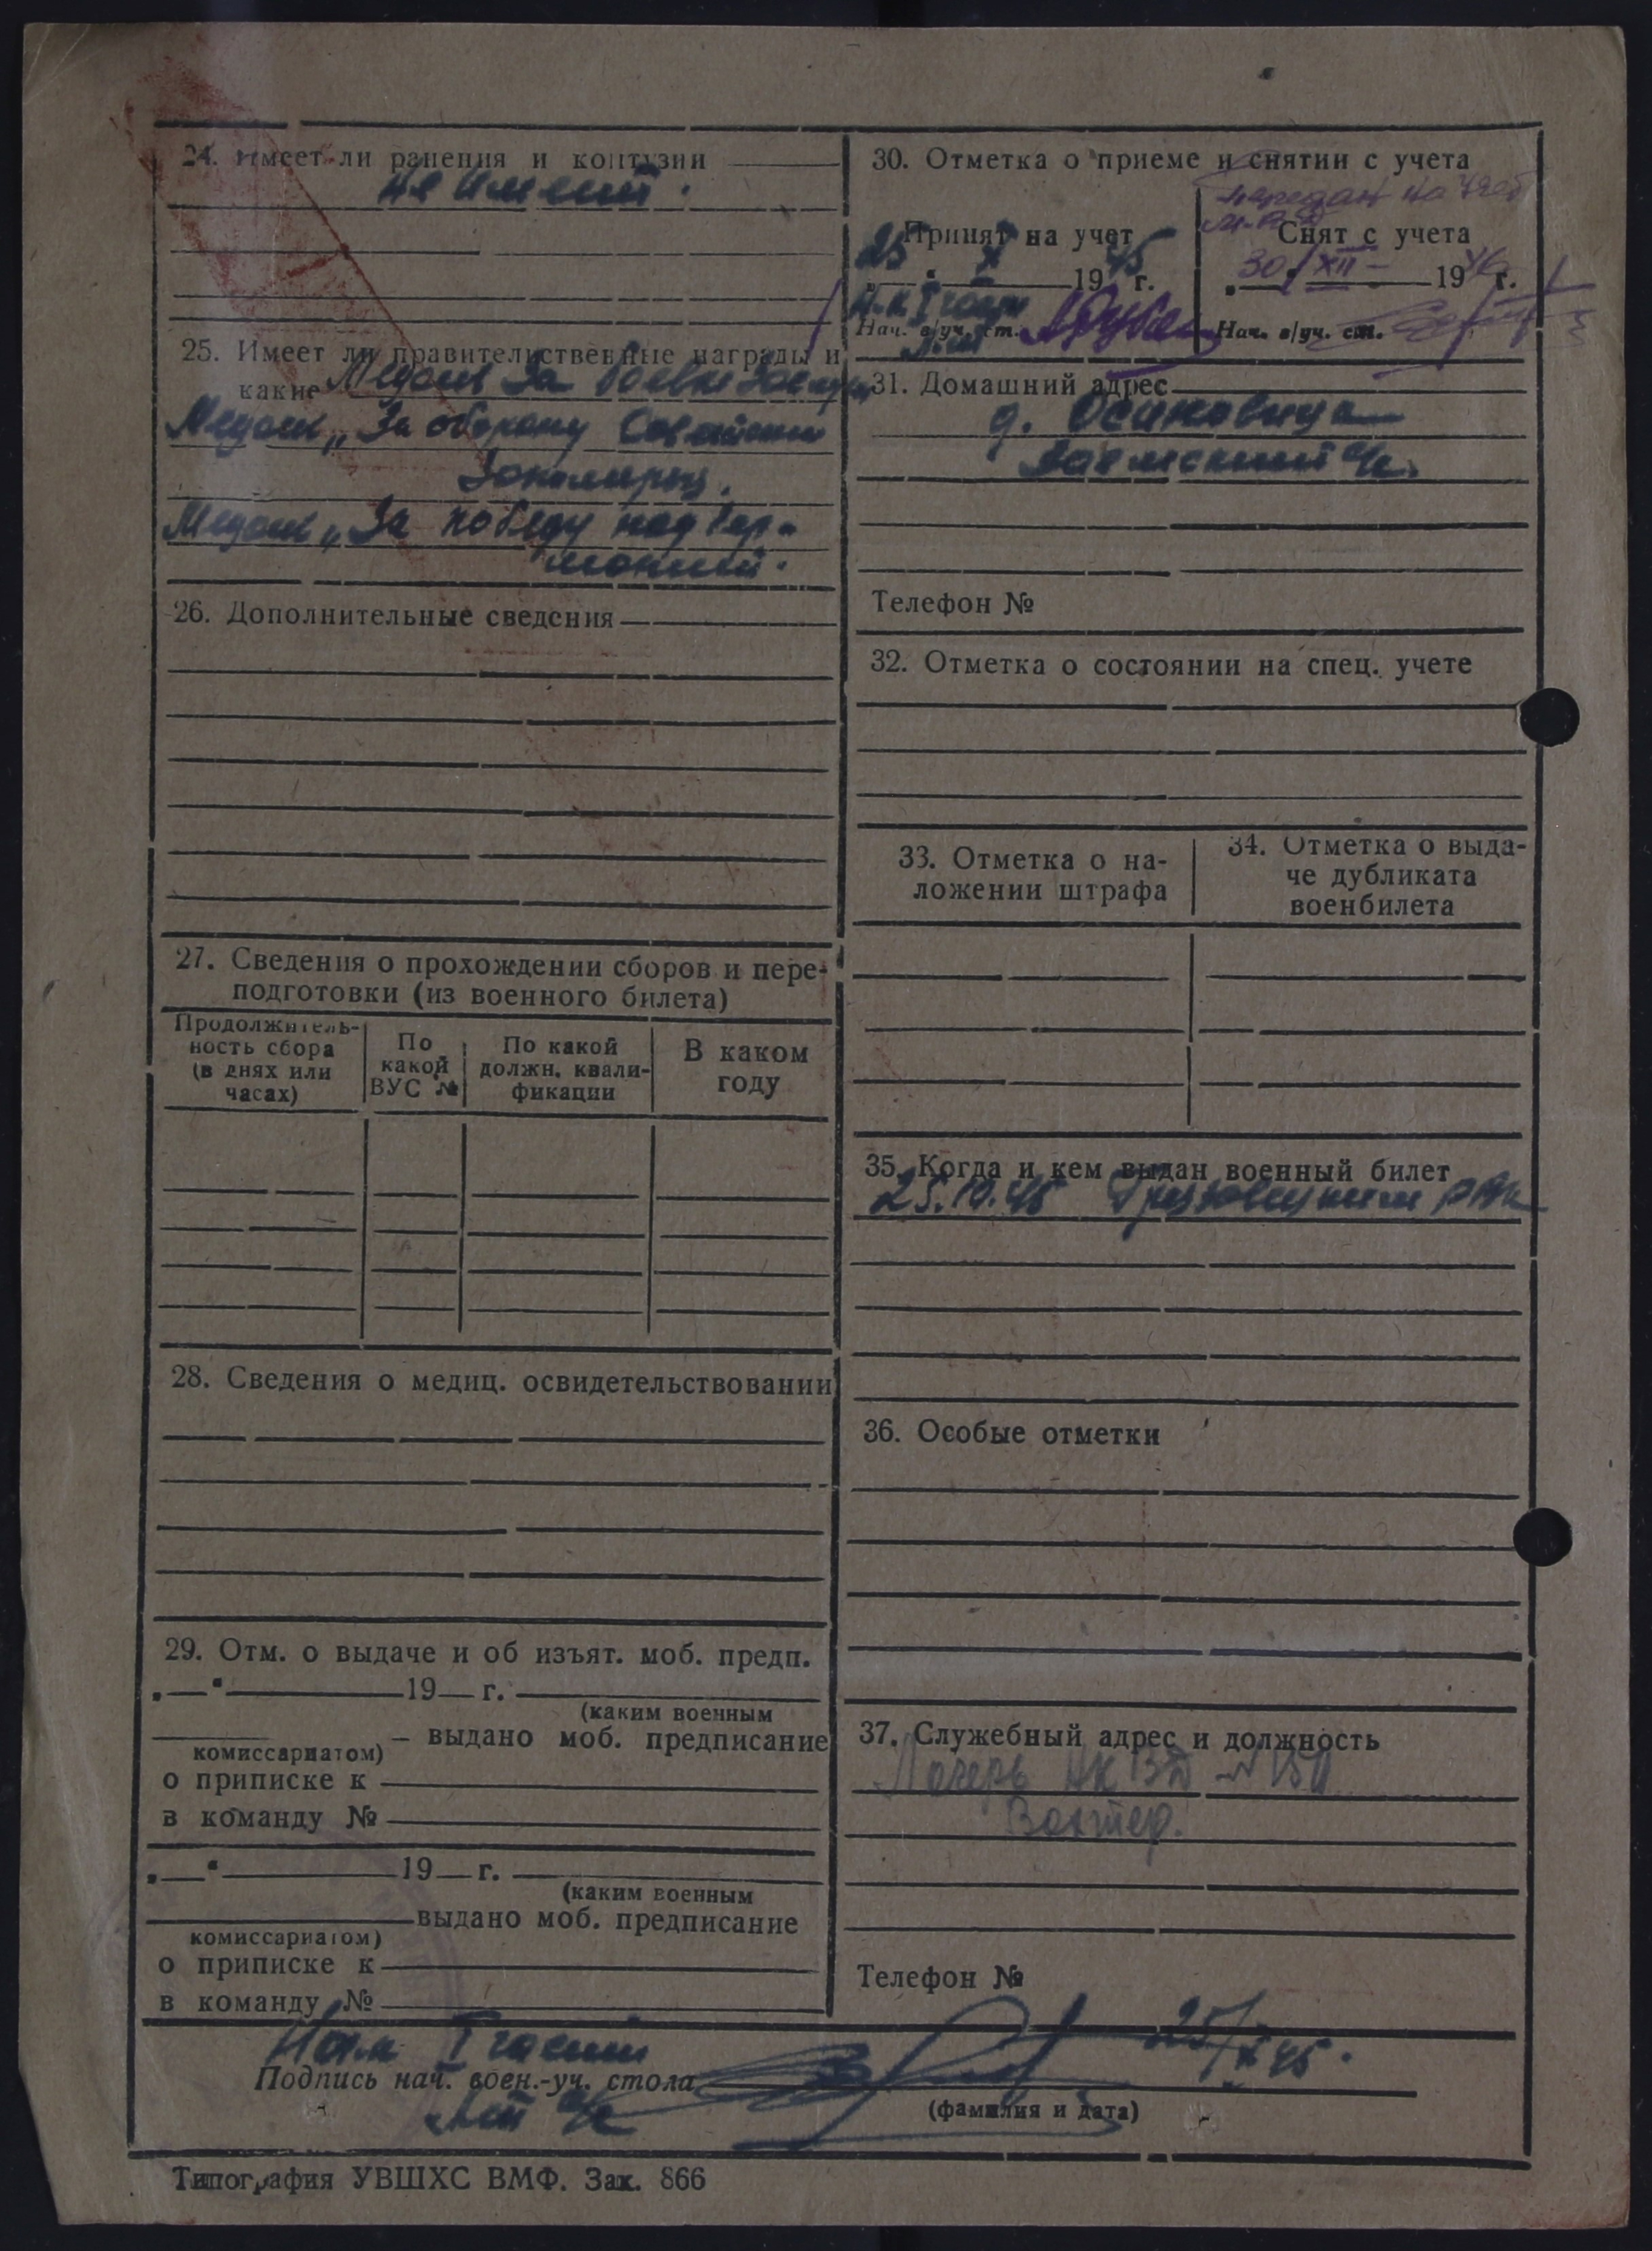 24. Имеет ли ранения и контузии
не имеет.
25. Имеет ли правительственные награды и
какие Медаль За боевые заслуги
Медаль „За оборону Советского
Заполярья.
Медаль „За победу над Гер-
манией.
26. Дополнительные сведения
27. Сведения о прохождении сборов и пере-
подготовки (из военного билета)
Продолжитель-
ность сбора
(в днях или
часах)
По
какой
ВУС №
По какой
должн. квали-
фикации
В каком
году
28. Сведения о медиц. освидетельствовании
29. Отм. о выдаче и об изъят. моб. предп.
„—“ 19— г.
(каким военным
— выдано моб. предписание
комиссариатом)
о приписке к
в команду №
„—“ 19— г.
(каким военным
выдано моб. предписание
комиссариатом)
о приписке к
в команду №
30. Отметка о приеме и снятии с учета
передан на учет
Принят на учет
25 X 1945 г.
Нач. в/уч. ст.
Снят с учета
30 XII 1946 г.
Нач. в/уч. ст.
31. Домашний адрес
д.
Телефон №
32. Отметка о состоянии на спец. учете
33. Отметка о на-
ложении штрафа
34. Отметка о выда-
че дубликата
военбилета
35. Когда и кем выдан военный билет
25.10.45 РВК
36. Особые отметки
37. Служебный адрес и должность
Лагерь НКВД №
Вахтер.
Телефон №
Нач. I части
Подпись нач. воен.-уч. стола
25/X 45.
(фамилия и дата)
Типография УВШХС ВМФ. Зак. 866